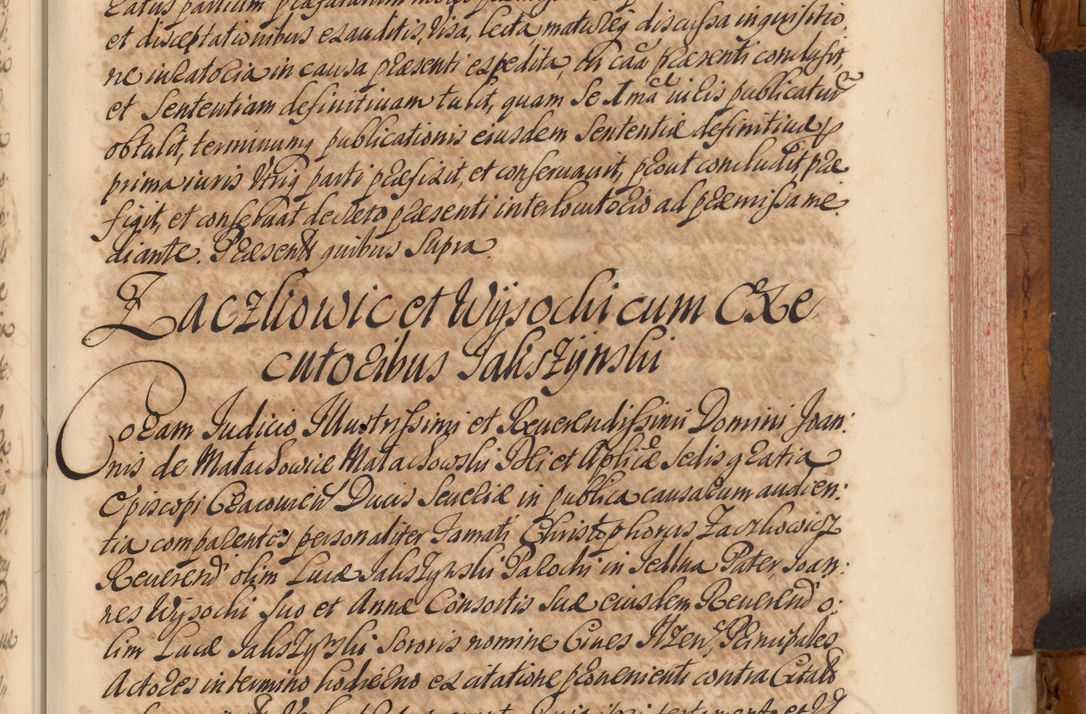 et disceptationibus exauditis, visa, lecta, matureq discussa inquisitio,
ne iuratoria in causa præsenti expedita, in cãa præsenti conclusit,
et Sententiam definitiuam tulit, quam Se Ima iuris publicaturũ
obtulit, terminumq publicationis eiusdem Sententiæ definitiuæ p
prima iuris Utriq parti præfixit, et conseruauit, prout concludit, præ
figit, et conseruat decreto præsenti interlocutorio ad præmissa me
diante. Præsentt quibus Supra.
Zaczkowic et Wÿsocki cum Exe
cutoribus Jaliszÿnski
Coram Judicio Illustrissimi et Reuerendissimi Domini Joan:
nis de Malachowice Malachowski Dei et Aplicæ Sedis gratia
Episcopi Cracouien Ducis Seueriæ in publica causarum audien:
tia comparentes personaliter Famati Christophorus Zaczkowicz
Reuerend olim Lucæ Jaliszÿnski Parochi in Jedlna Pater, Joan:
nes Wÿsocki Suo et Annæ Consortis Suæ eiusdem Reuerend o:
lim Lucæ Jaliszÿnski Sororis nomine Ciues Ilzen, Principales
Actores in termino hodierno ex citatione proueniente contra Citatos